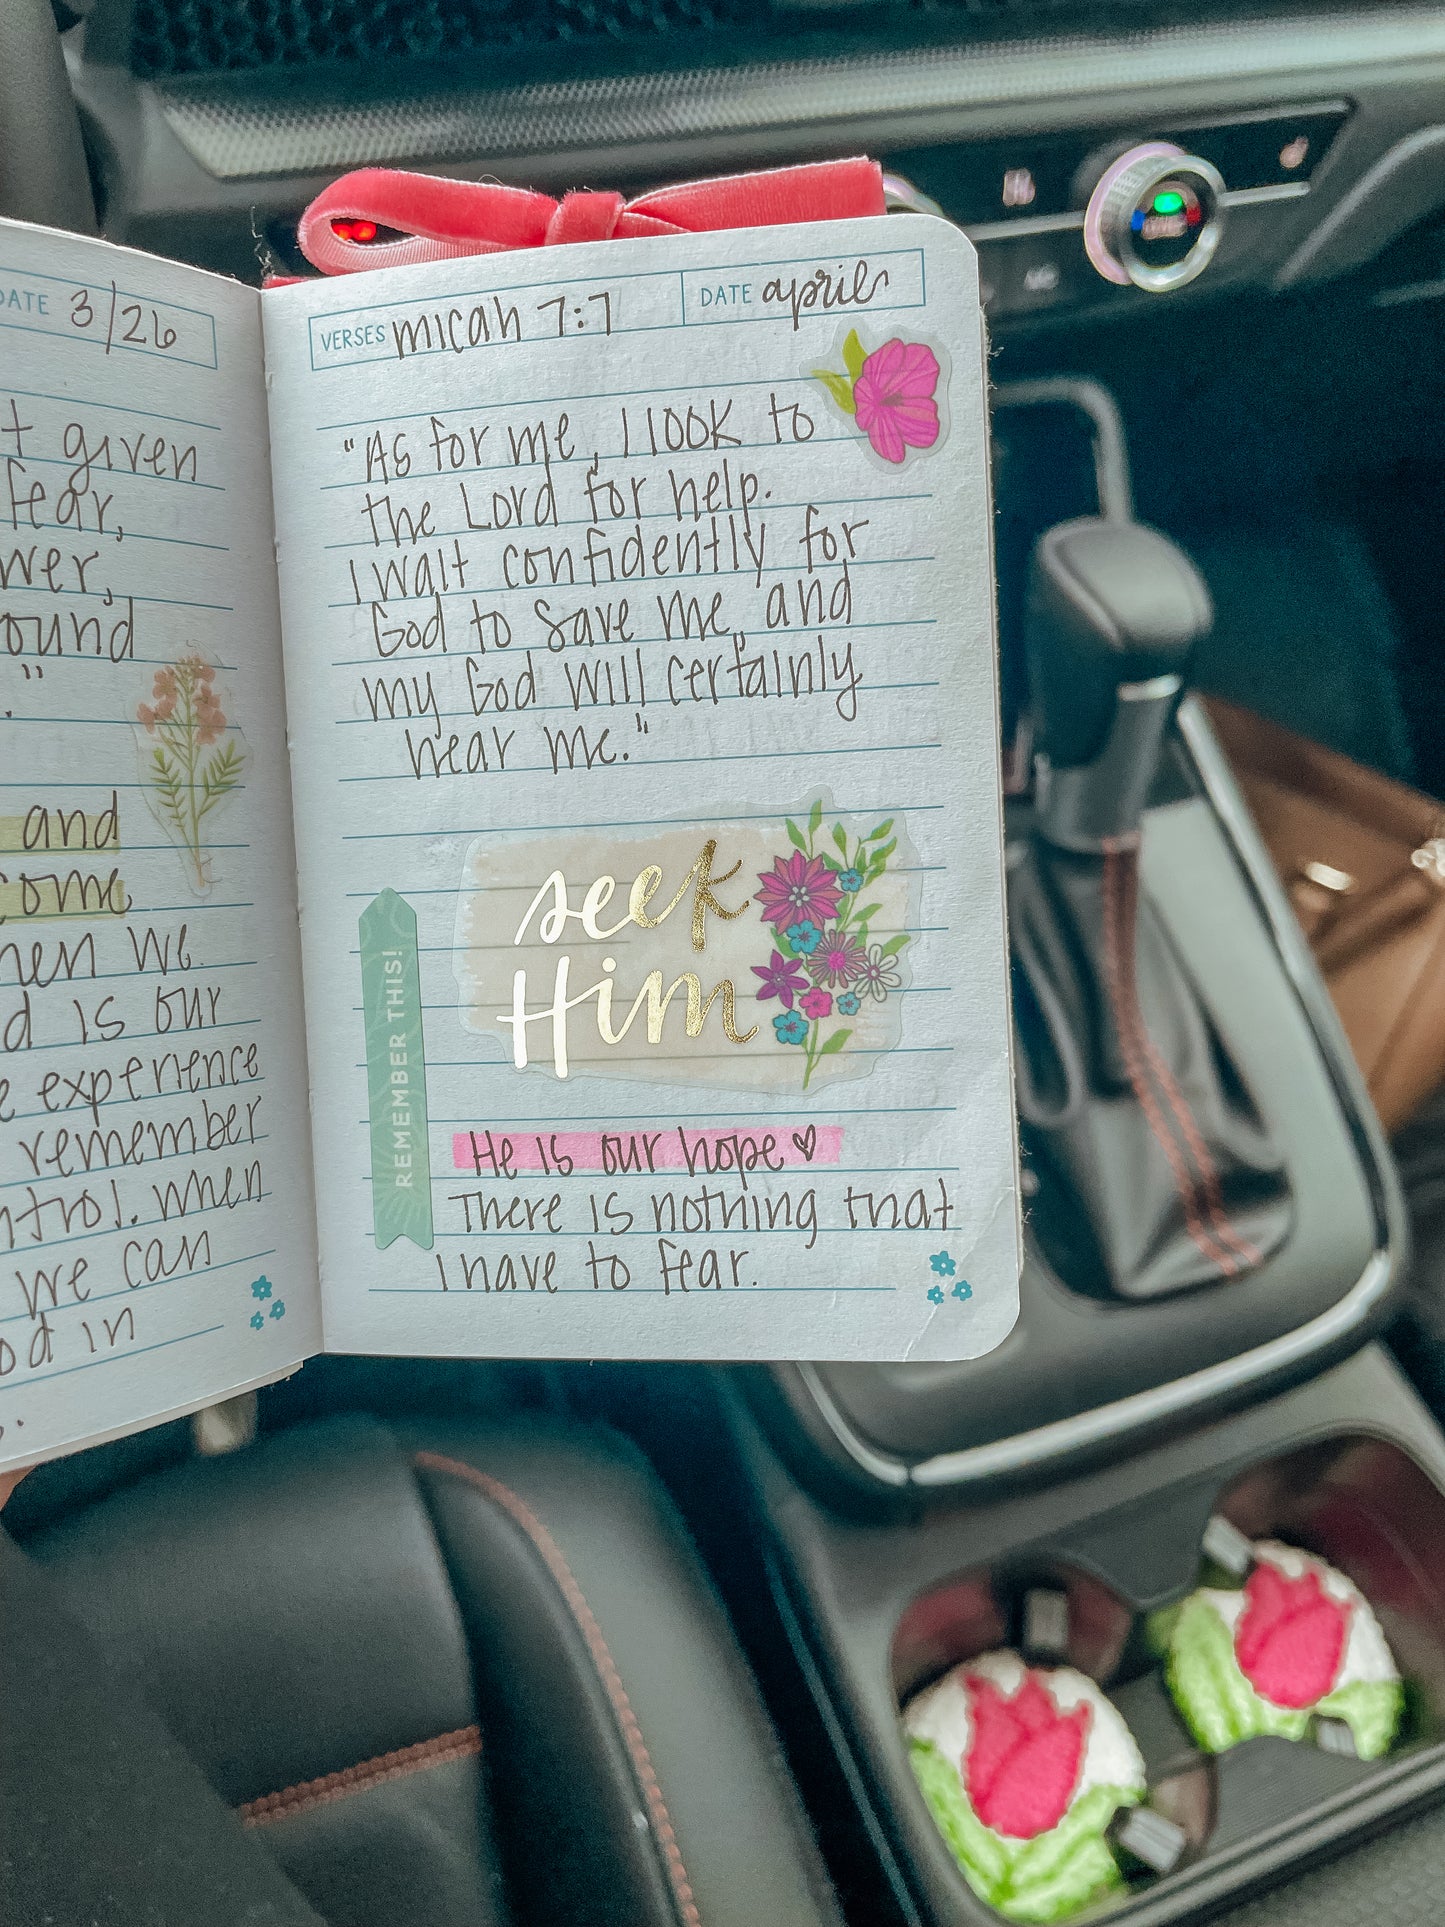 DATE 3/26
t given
fear,
wer,
ound
."
and
come
hen we
d is our
e experience
remember
ntrol. when
we can
od in
s.
VERSES micah 7:7 DATE april
"As for me, I look to
the Lord for help.
I wait confidently for
God to save me, and
my God will certainly
hear me."
seek
Him
REMEMBER THIS!
He is our hope ♡
There is nothing that
I have to fear.